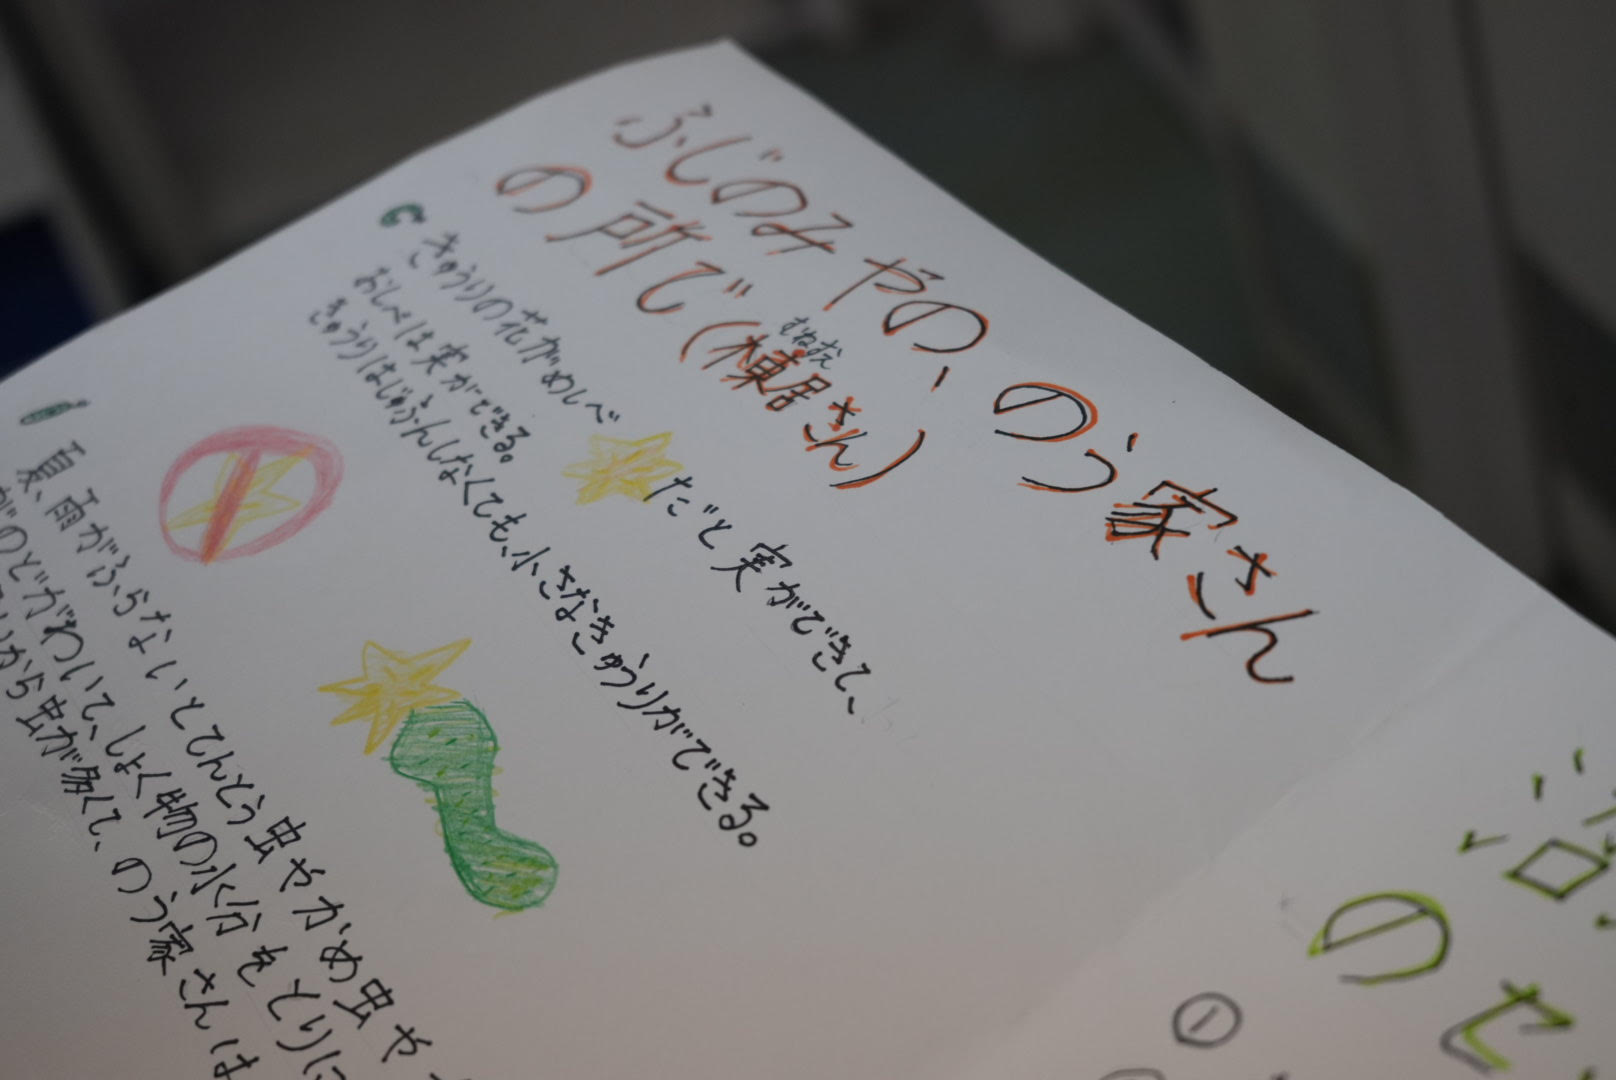 ふじのみやの、のう家さん
の所で(棟居さん)
むねすえ
きゅうりの花がめしべだと実ができて、
おしべは実ができる。
きゅうりはじゅふんしなくても、小さなきゅうりができる。
夏、雨がふらないとてんとう虫やかめ虫や
がのどがかわいて、しょく物の水分をとりに
から虫が多くて、のう家さんは
のセ
①